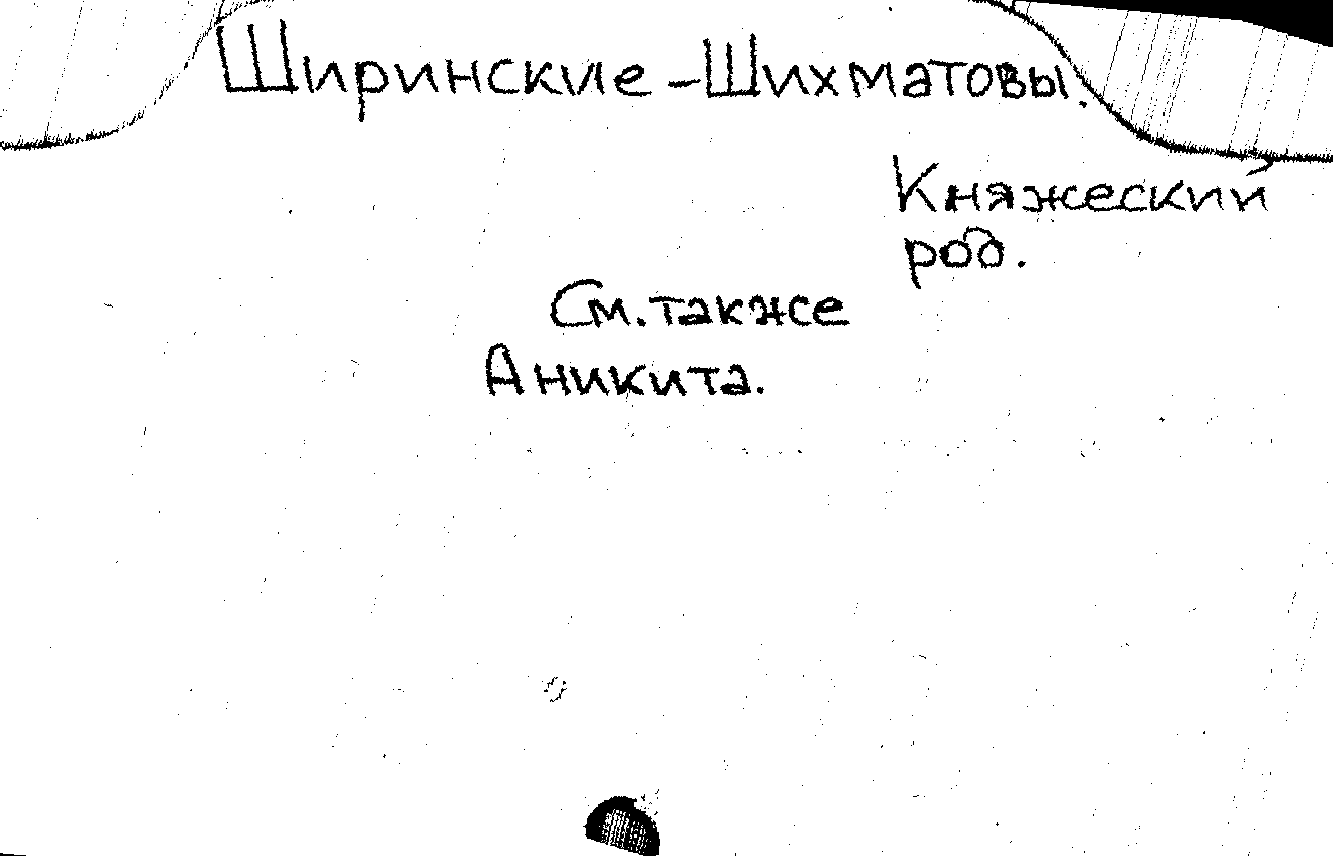 Ширинские-Шихматовы.
Княжеский
род.
См. также
Аникита.